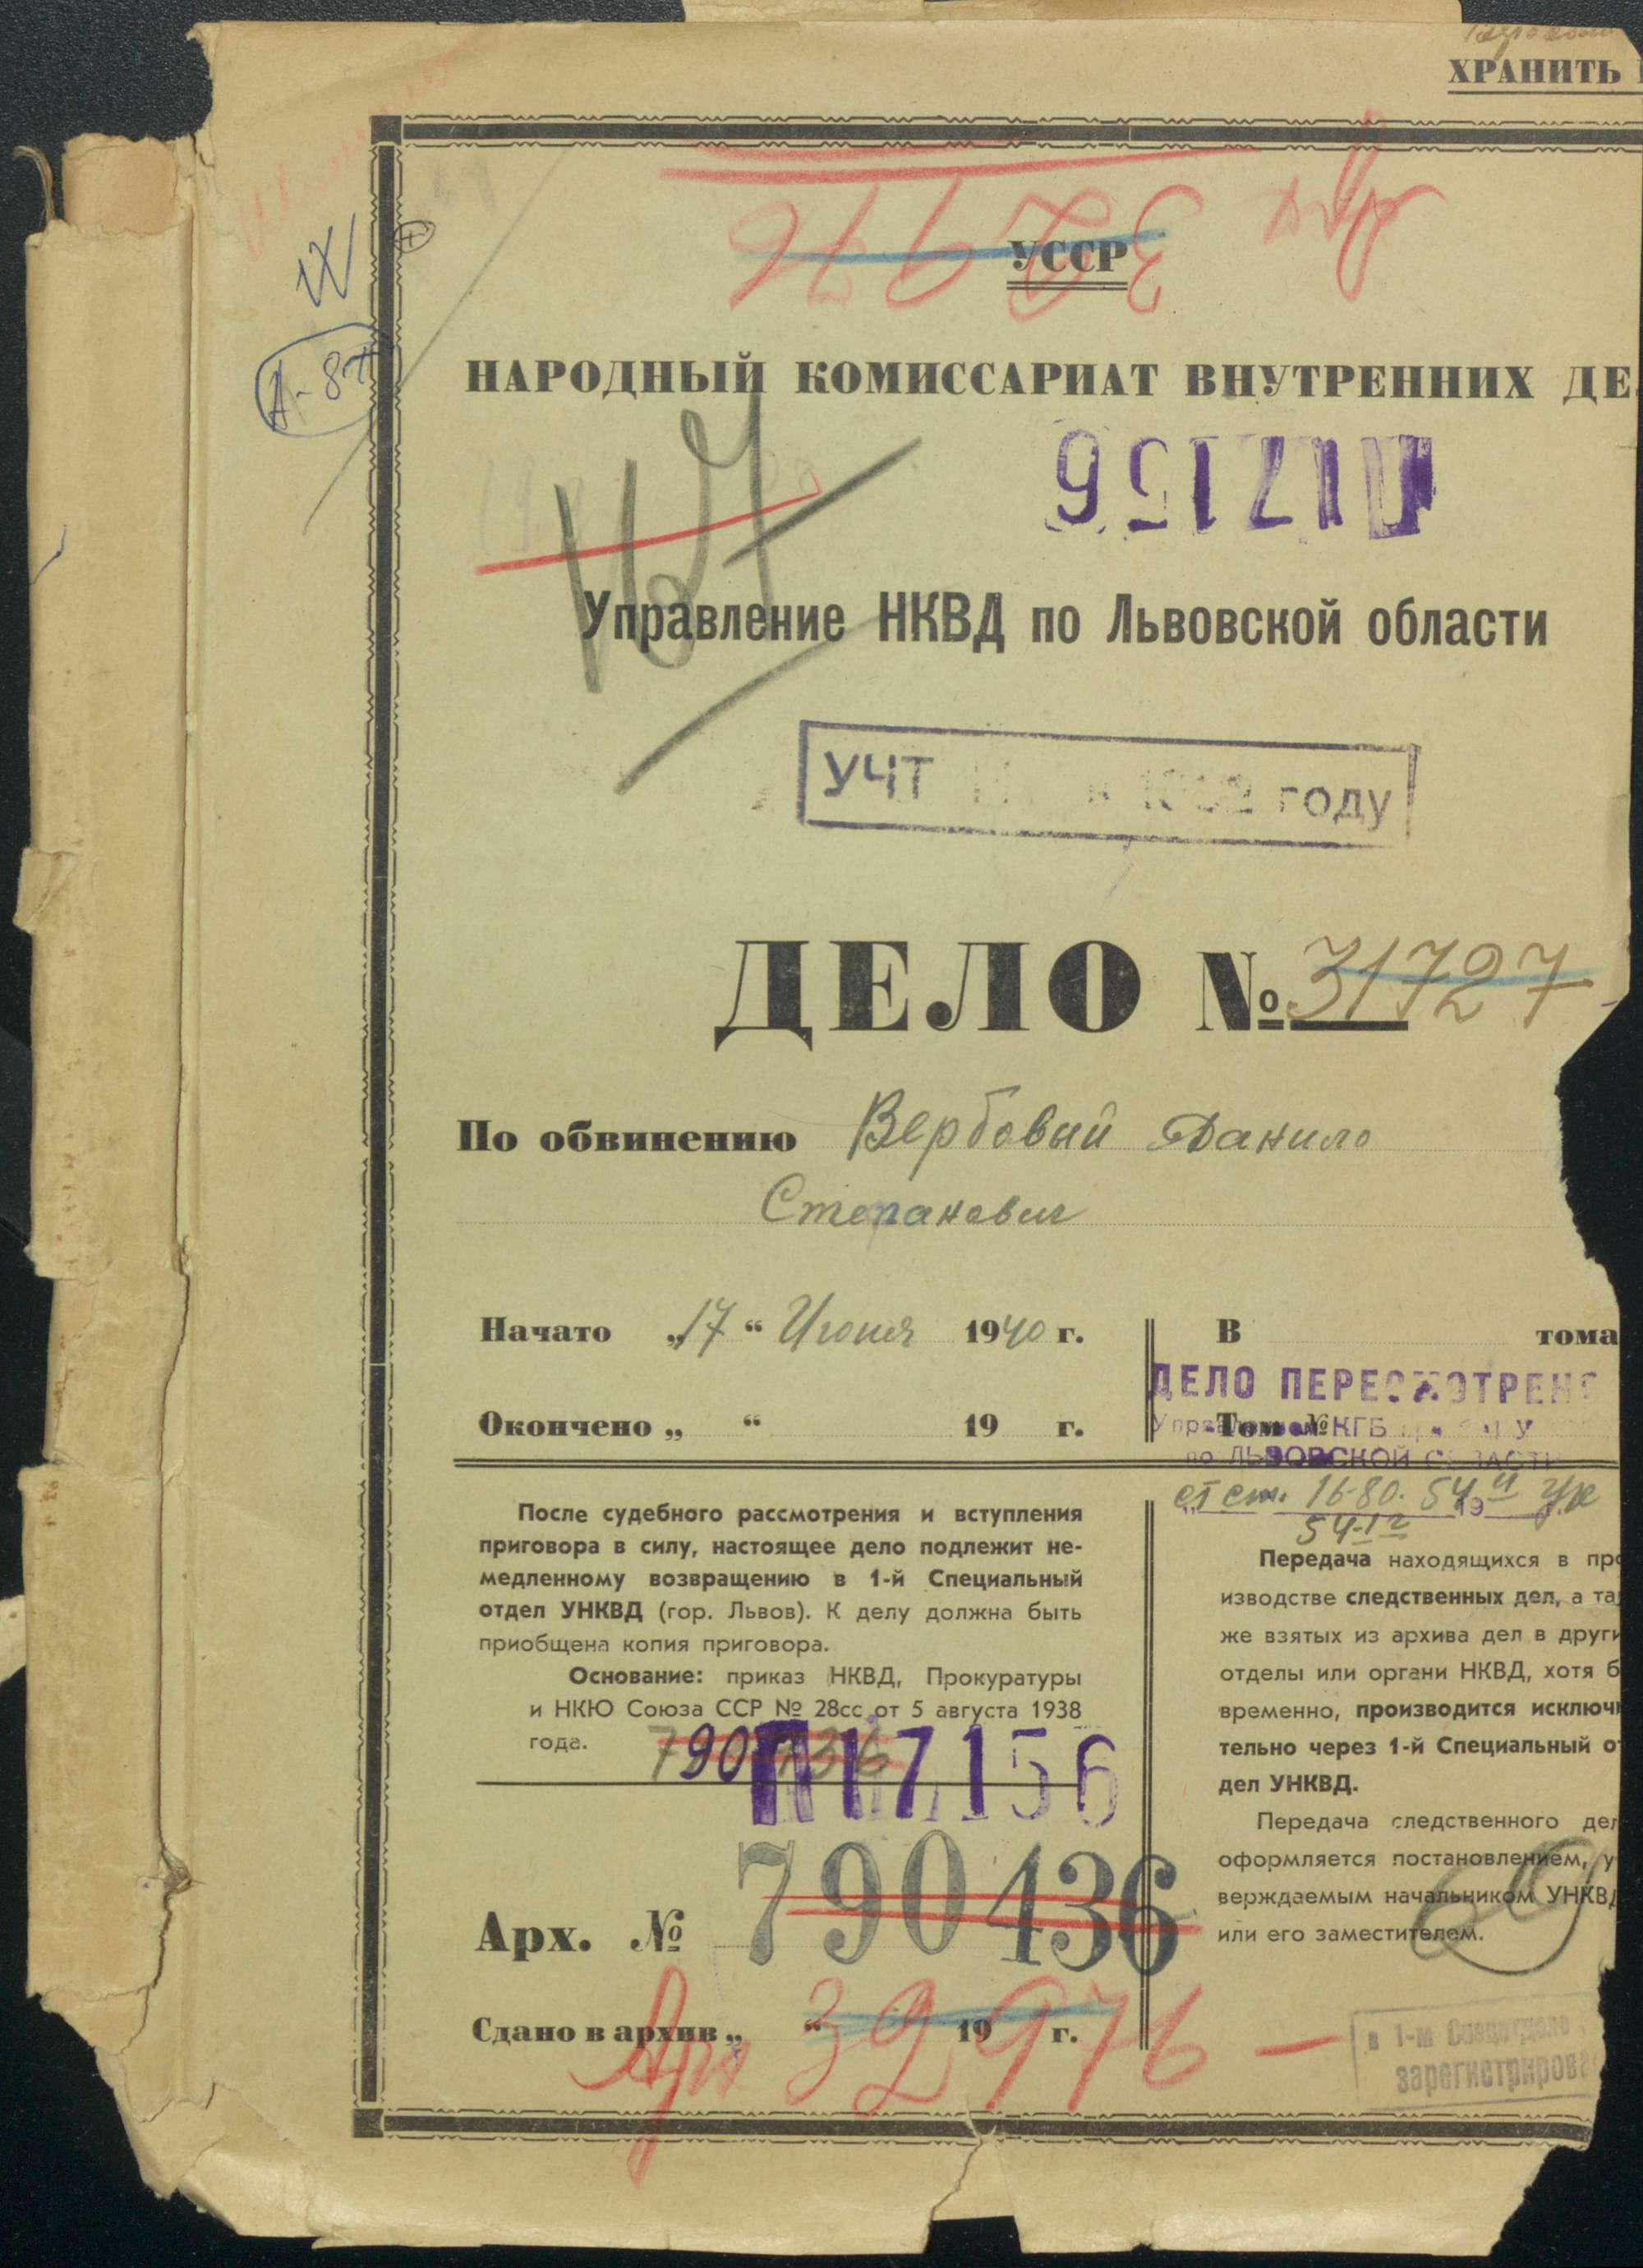 ХРАНИТЬ
Арх 32976
УССР
IX
А-87
НАРОДНЫЙ КОМИССАРИАТ ВНУТРЕННИХ ДЕ
П17156
Управление НКВД по Львовской области
УЧТ году
ДЕЛО № 31727
По обвинению Вербовый Данило
Степанович
Начато „17“ Июня 1940 г.
Окончено „ “ 19 г.
В тома
ДЕЛО ПЕРЕСМОТРЕНО
Том № КГБ
по ЛЬВОВСКОЙ ОБЛАСТИ
ст ст. 16-80. 54-11 УК
54-12
19
После судебного рассмотрения и вступления
приговора в силу, настоящее дело подлежит не-
медленному возвращению в 1-й Специальный
отдел УНКВД (гор. Львов). К делу должна быть
приобщена копия приговора.
Основание: приказ НКВД, Прокуратуры
и НКЮ Союза ССР № 28сс от 5 августа 1938
года.
790436
П17156
Арх. № 790436
Сдано в архив „ “ 19 г.
Арх 32976 —
Передача находящихся в про
изводстве следственных дел, а та
же взятых из архива дел в други
отделы или органи НКВД, хотя б
временно, производится исключи
тельно через 1-й Специальный о
дел УНКВД.
Передача следственного дел
оформляется постановлением, у
верждаемым начальником УНКВД
или его заместителем.
в 1-м Спецотделе
зарегистрирова